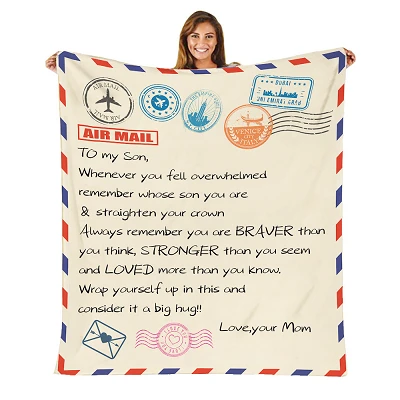 AIR MAIL
DUBAI
UNI EMIRAT ARAB
VENICE
ITALY
AIR MAIL
TO my Son,
Whenever you fell overwhelmed
remember whose son you are
& straighten your crown
Always remember you are BRAVER than
you think, STRONGER than you seem
and LOVED more than you know.
Wrap yourself up in this and
consider it a big hug!!
Love,your Mom